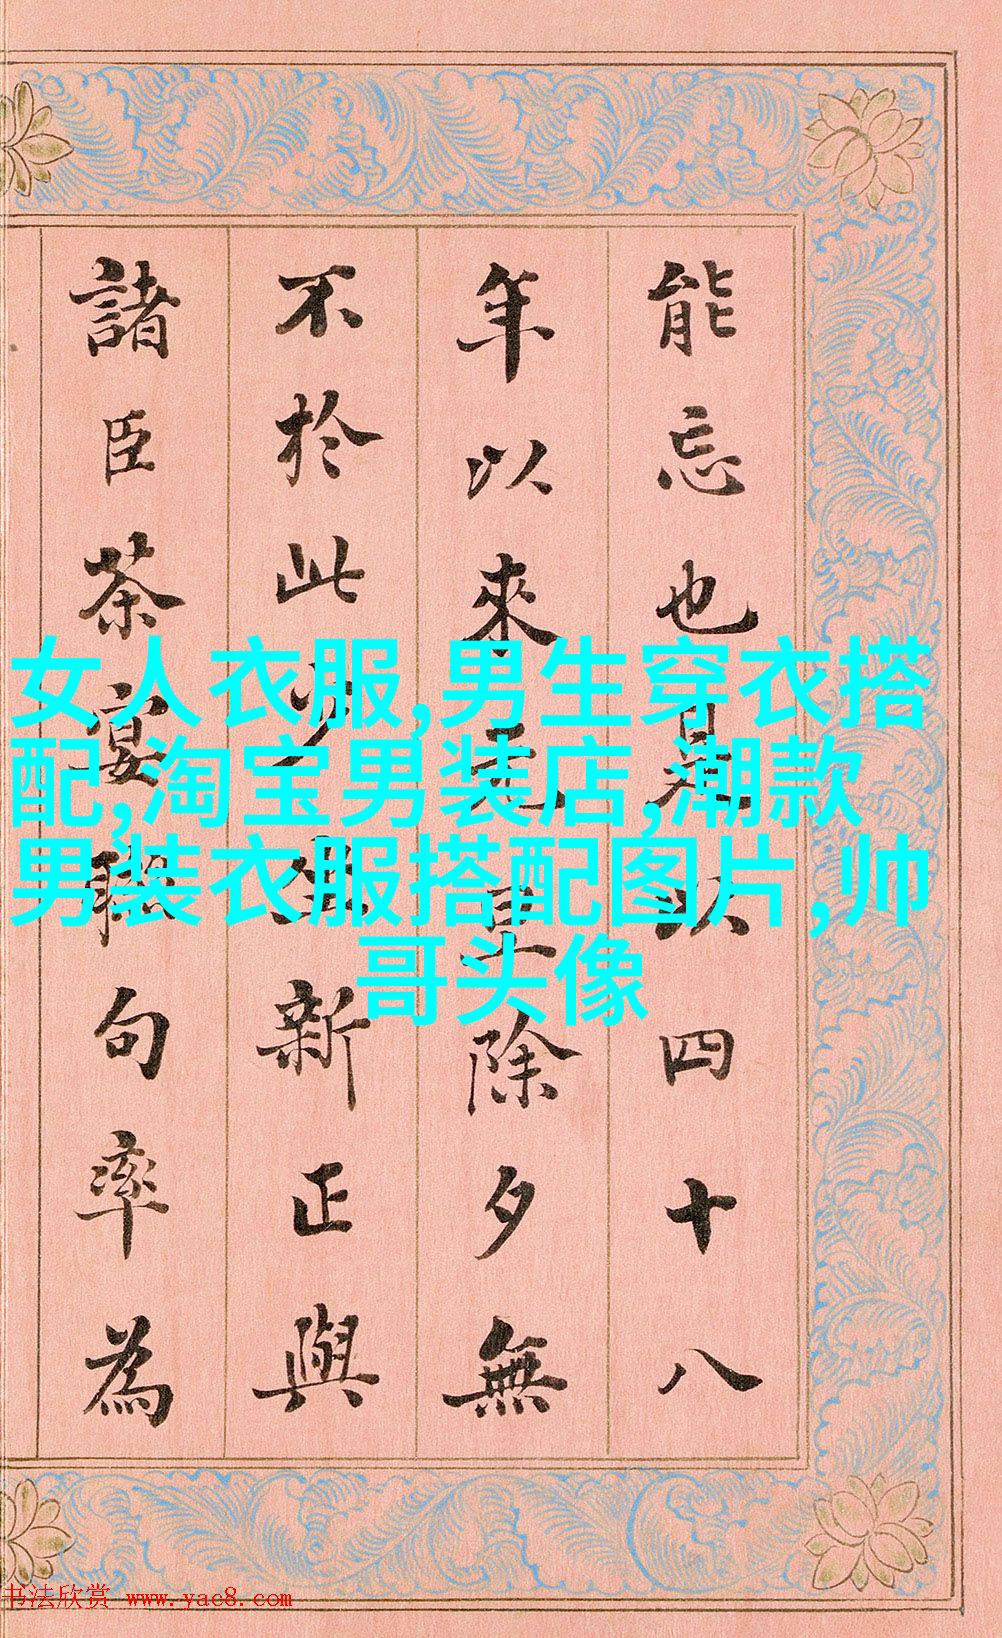 能忘也是以四十八
年以來元旦除夕無
不於此少坐新正與
諸臣茶宴聯句率為
女人衣服,男生穿衣搭
配,淘宝男装店,潮款
男装衣服搭配图片,帅
哥头像
书法欣赏 www.yac8.com